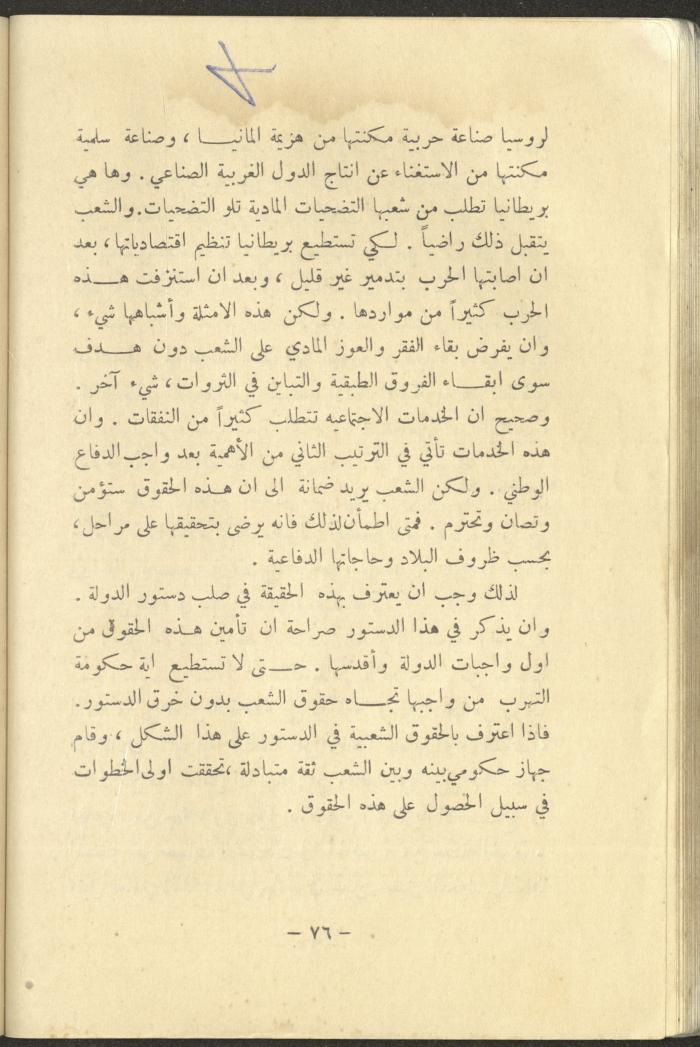 لروسيا صناعة حربية مكنتها من هزيمة المانيـــا ، وصناعة سلمية
مكنتها من الاستغناء عن انتاج الدول الغربية الصناعي . وها هي
بريطانيا تطلب من شعبها التضحيات المادية تلو التضحيات. والشعب
يتقبل ذلك راضياً . لكي تستطيع بريطانيا تنظيم اقتصادياتها، بعد
ان اصابتها الحرب بتدمير غير قليل ، وبعد ان استنزفت هـــذه
الحرب كثيراً من مواردها . ولكن هذه الامثلة وأشباهها شيء ،
وان يفرض بقاء الفقر والعوز المادي على الشعب دون هـــدف
سوى ابقـــاء الفروق الطبقية والتباين في الثروات ، شيء آخر .
وصحيح ان الخدمات الاجتماعيه تتطلب كثيراً من النفقات . وان
هذه الخدمات تأتي في الترتيب الثاني من الأهمية بعد واجب الدفاع
الوطني . ولكن الشعب يريد ضمانة الى ان هـذه الحقوق ستؤمن
وتصان وتحترم . فمتى اطمأن لذلك فانه يرضى بتحقيقها على مراحل،
بحسب ظروف البلاد وحاجاتها الدفاعية .
لذلك وجب ان يعترف بهذه الحقيقة في صلب دستور الدولة .
وان يذكر في هذا الدستور صراحة ان تأمين هـذه الحقوق من
اول واجبات الدولة وأقدسها . حـــتى لا تستطيع اية حكومة
التهرب من واجبها تجـــاه حقوق الشعب بدون خرق الدستور.
فاذا اعترف بالحقوق الشعبية في الدستور على هذا الشكل ، وقام
جهاز حكومي بينه وبين الشعب ثقة متبادلة ،تحققت اولى الخطوات
في سبيل الحصول على هذه الحقوق .
— ٧٦ —